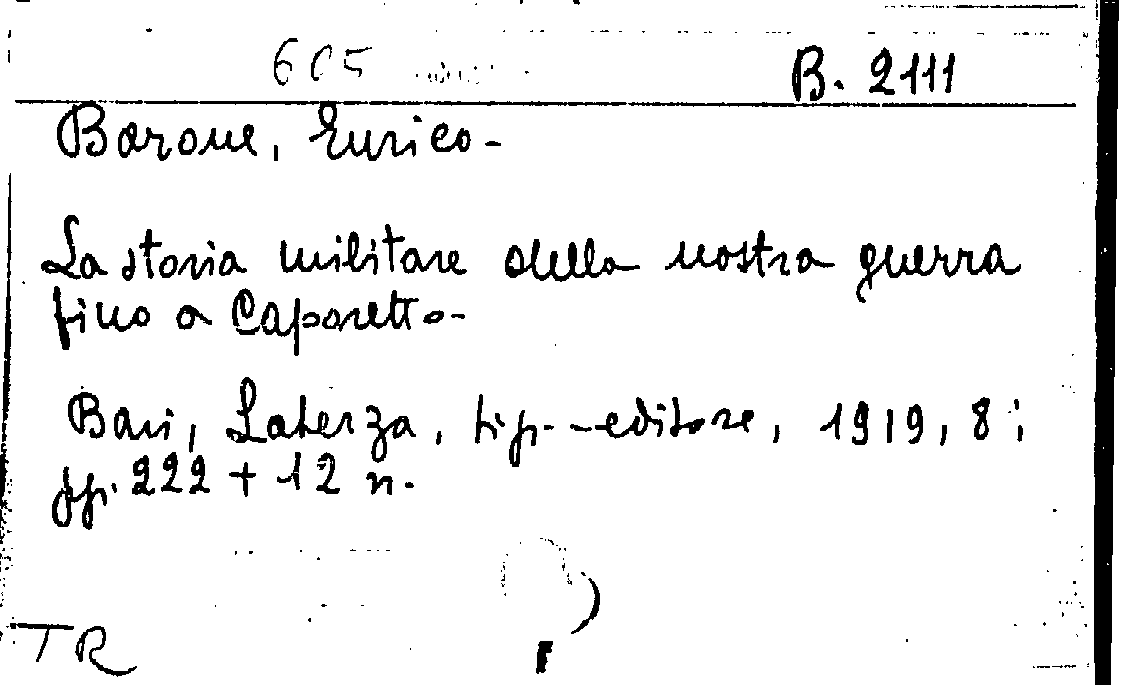 605 B. 2111
Barone, Enrico -
La storia militare della nostra guerra
fino a Caporetto -
Bari, Laterza, tip. - editore, 1919, 8 ;
pp. 222 + 12 n.
TR